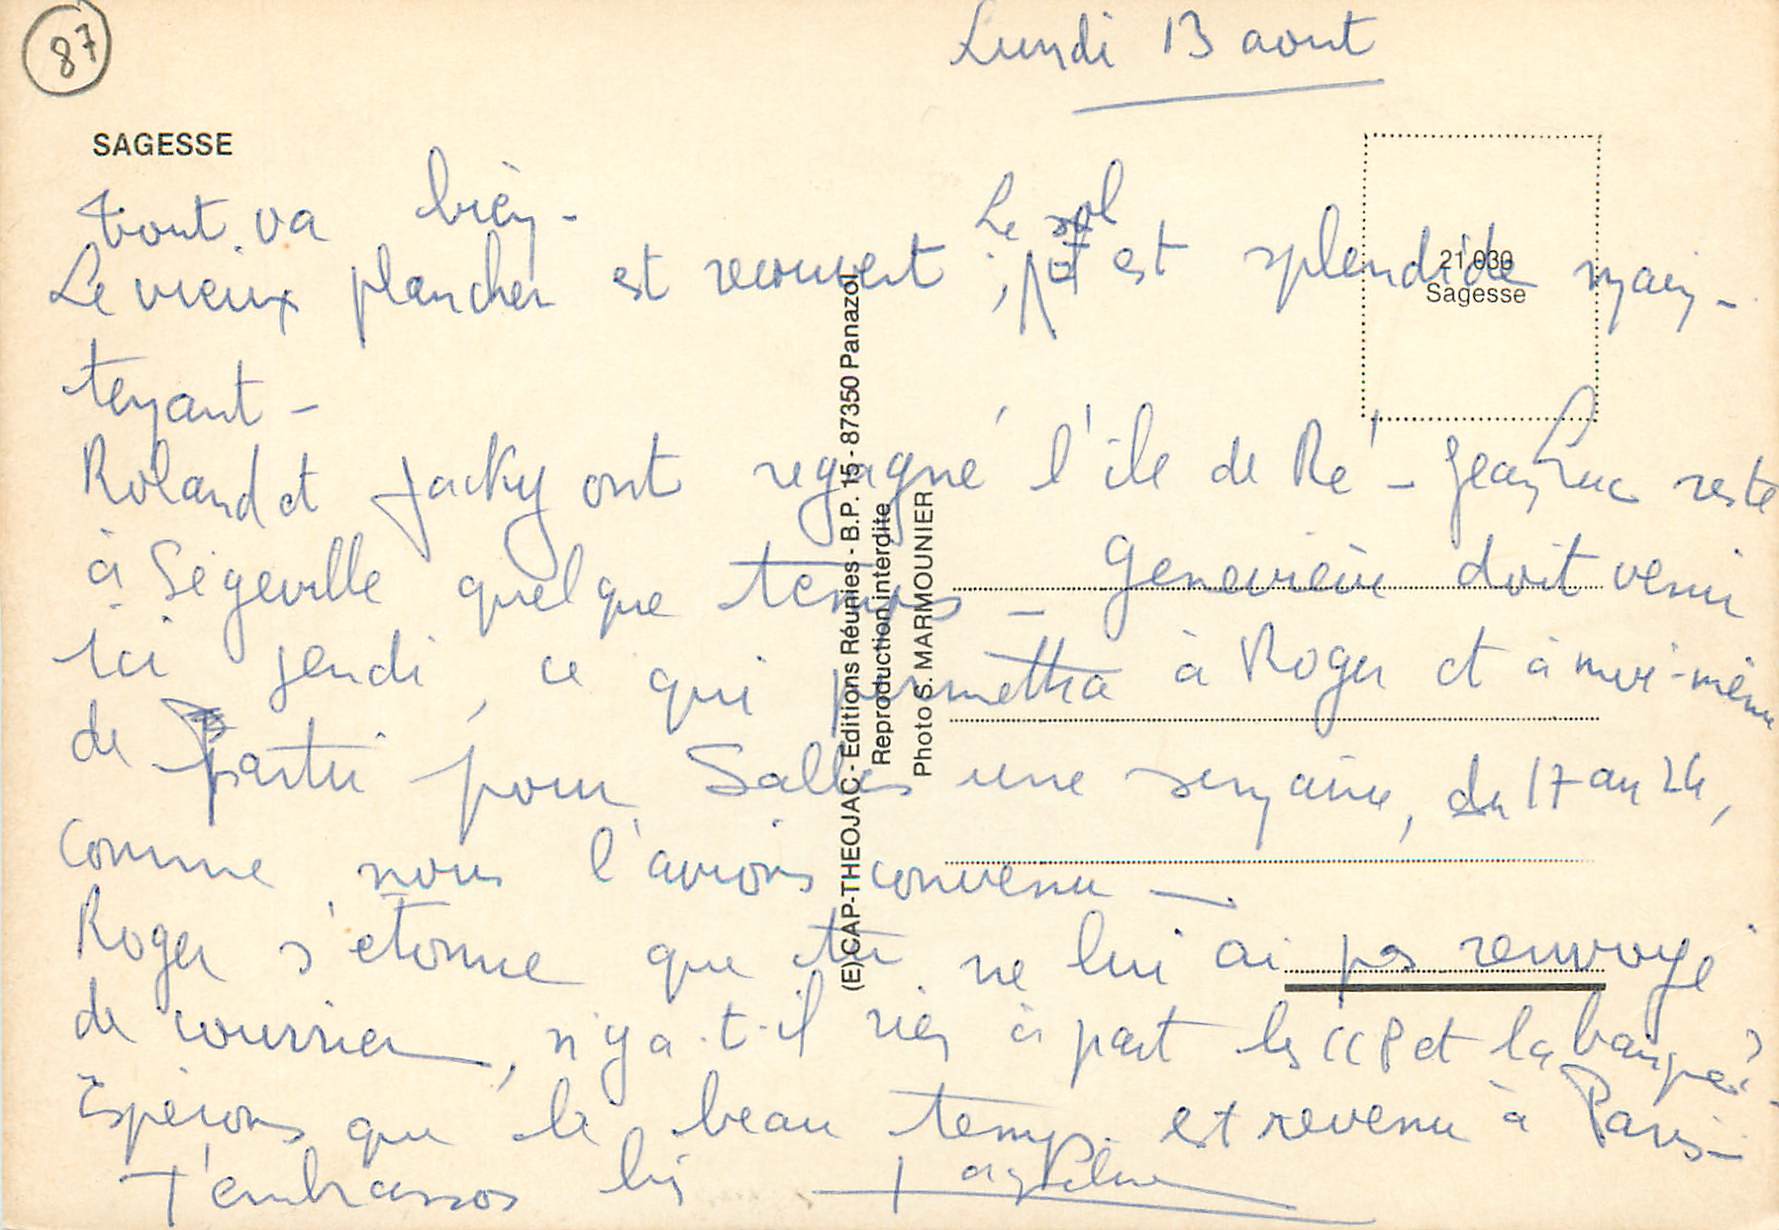 87
Lundi 13 aout
SAGESSE
tout va bien -
Le sol
Le vieux plancher est recouvert ; est splendide main-
21 030
Sagesse
tenant -
Roland et Jacky ont regagné l'île de Ré - Jean Luc reste
à Ségeville quelque temps - Geneviève doit venir
ici jeudi, ce qui permettra à Roger et à moi-même
de partir pour Salles une semaine, du 17 au 24,
comme nous l'avions convenu -
Roger s'étonne que tu ne lui ai pas renvoyé
de courrier, n'y a-t-il rien à part les CCP et la banque?
Espérons que le beau temps est revenu à Paris -
T'embrassons bien
(E) CAP-THEOJAC - Editions Réunies - B.P. 15 - 87350 Panazol
Reproduction interdite
Photo S. MARMOUNIER